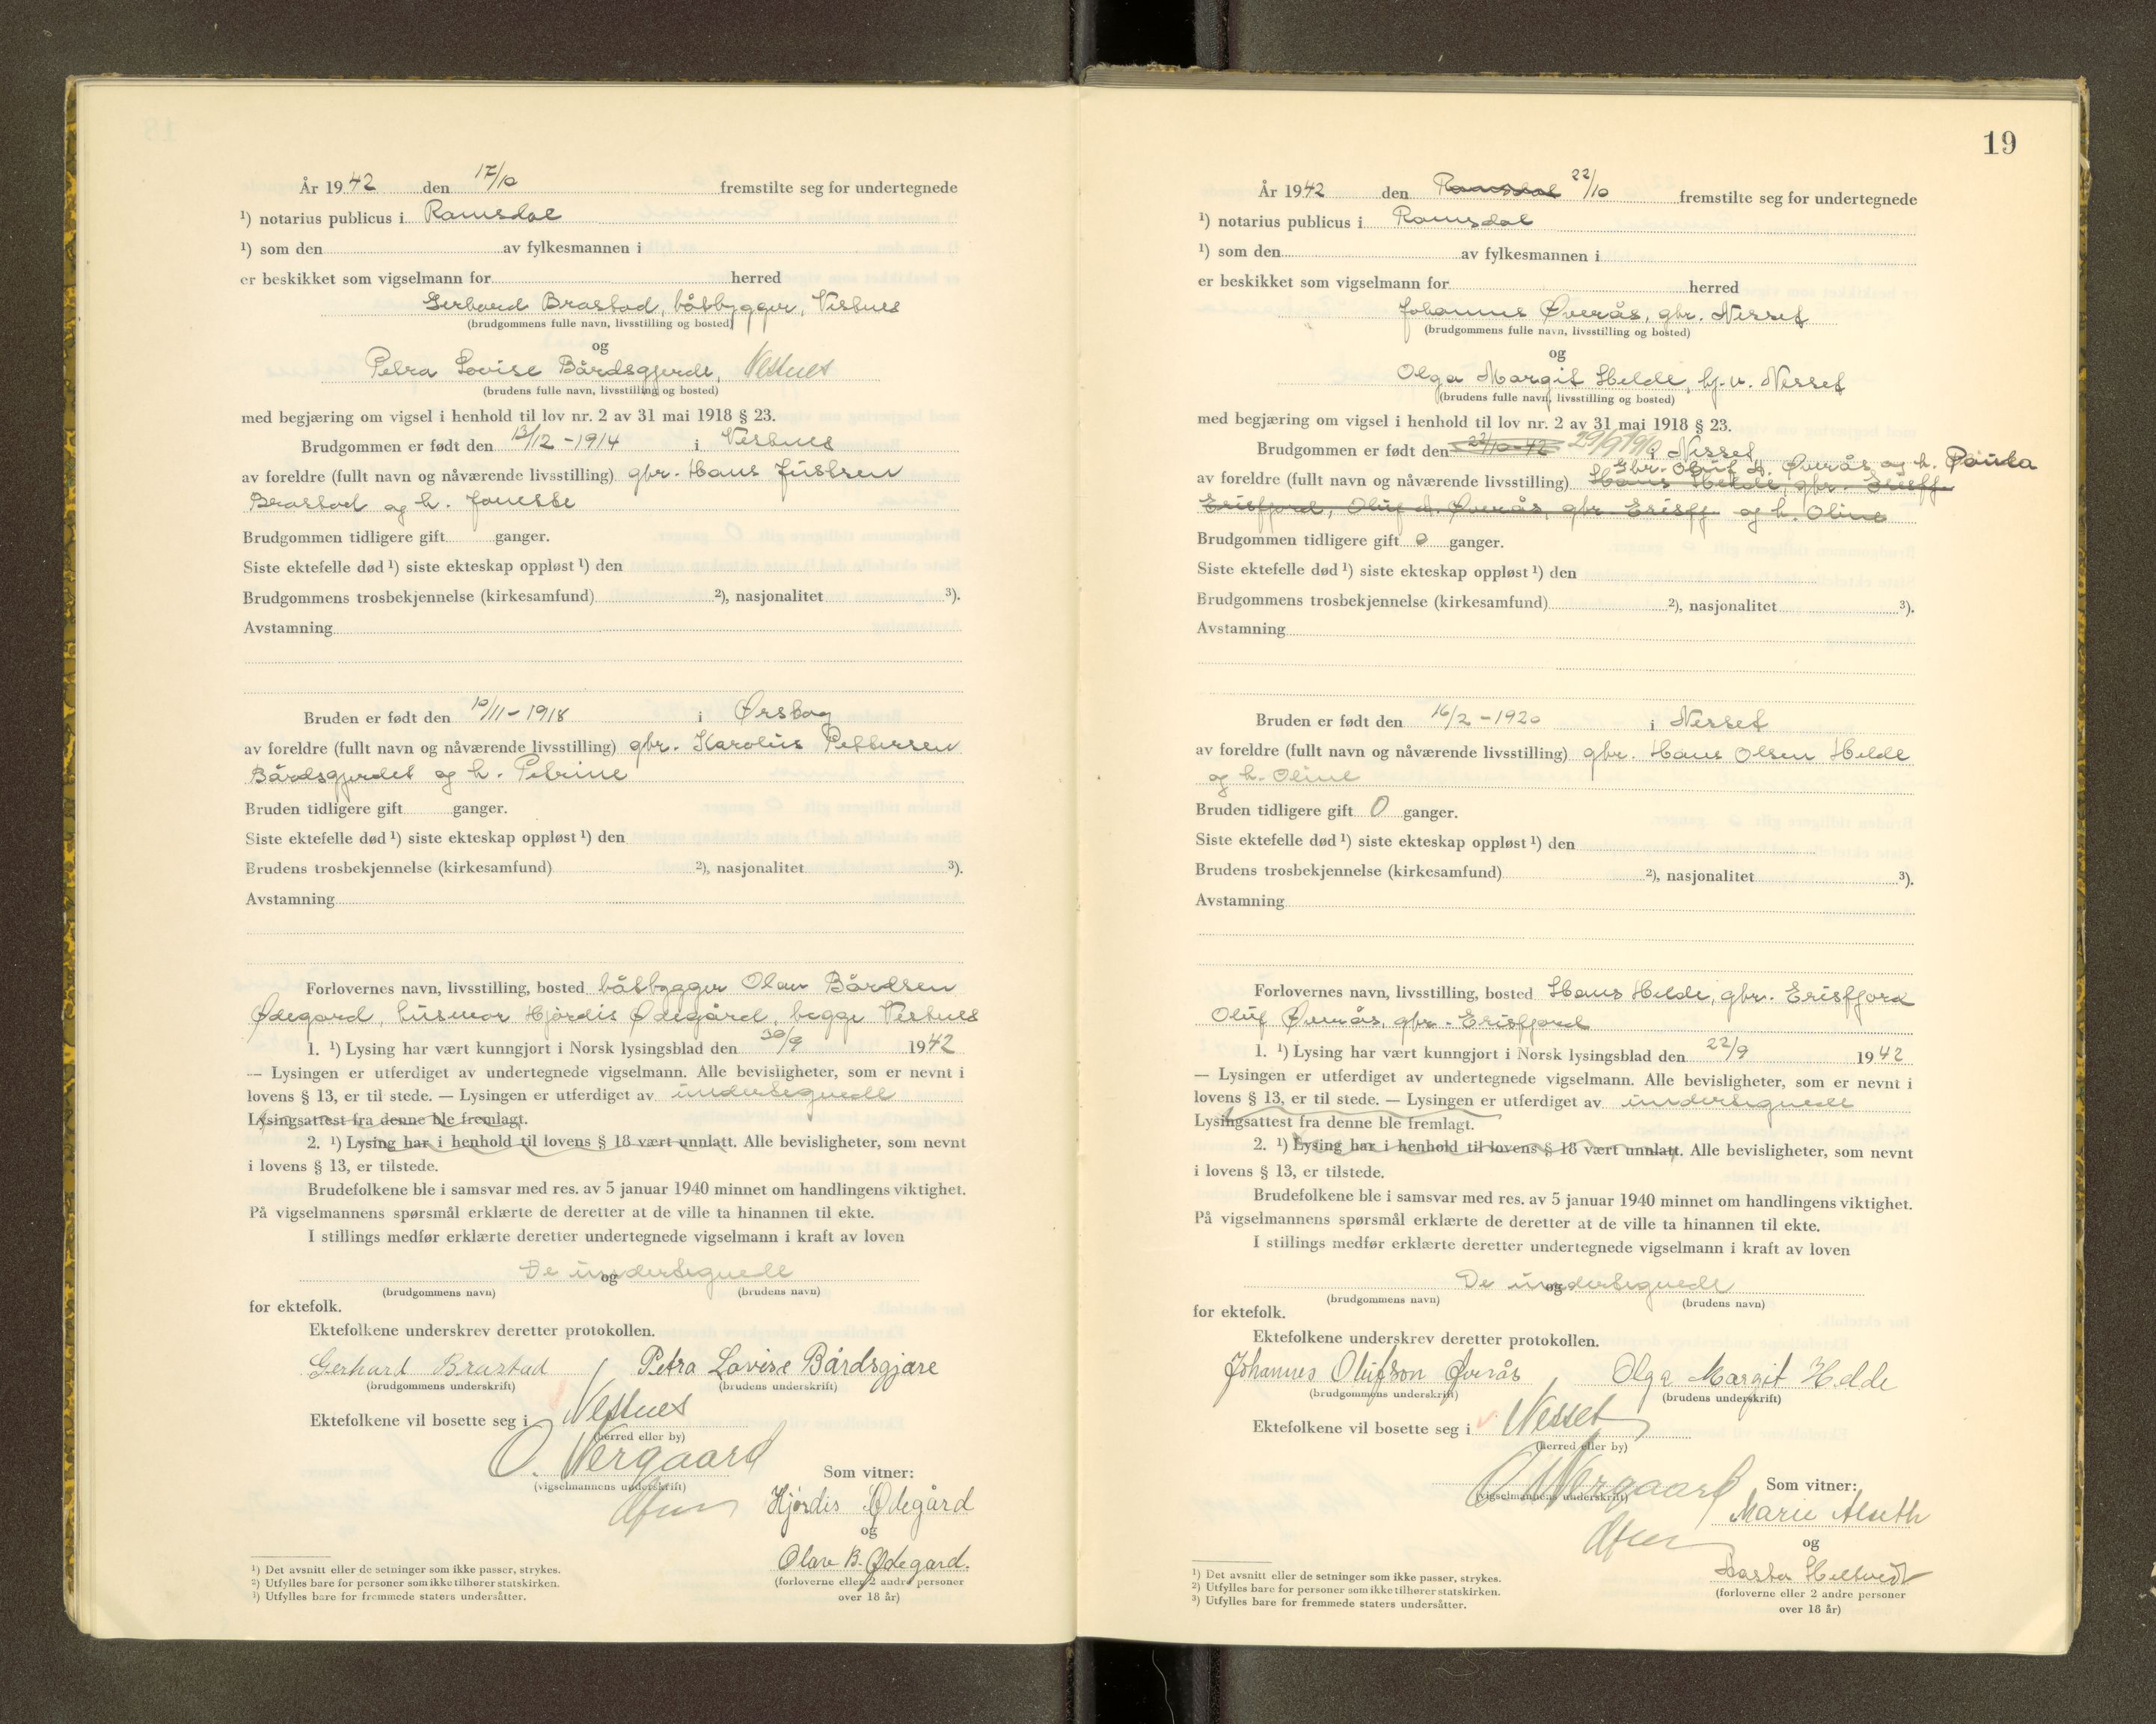 År 1942 den 17/10 fremstilte seg for undertegnede
¹) notarius publicus i Romsdal
¹) som den av fylkesmannen i
er beskikket som vigselmann for herred
Gerhard Brastad, båtbygger, Vestnes
(brudgommens fulle navn, livsstilling og bosted)
og
Petra Lovise Bårdsgjerde, Vestnes
(brudens fulle navn, livsstilling og bosted)
med begjæring om vigsel i henhold til lov nr. 2 av 31 mai 1918 § 23.
Brudgommen er født den 13/12 - 1914 i Vestnes
av foreldre (fullt navn og nåværende livsstilling) gbr. Hans Justsen
Brastad og h. Jonette
Brudgommen tidligere gift ganger.
Siste ektefelle død ¹) siste ekteskap oppløst ¹) den
Brudgommens trosbekjennelse (kirkesamfund) ²), nasjonalitet ³).
Avstamning
Bruden er født den 10/11 - 1918 i Ørskog
av foreldre (fullt navn og nåværende livsstilling) gbr. Karolus Pettersen
Bårdsgjerdet og h. Petrine
Bruden tidligere gift ganger.
Siste ektefelle død ¹) siste ekteskap oppløst ¹) den
Brudens trosbekjennelse (kirkesamfund) ²), nasjonalitet ³).
Avstamning
Forlovernes navn, livsstilling, bosted båtbygger Olav Bårdsen
Ødegård, husmor Hjördis Ødegård, begge Vestnes
1. ¹) Lysing har vært kunngjort i Norsk lysingsblad den 30/9 1942
— Lysingen er utferdiget av undertegnede vigselmann. Alle bevisligheter, som er nevnt i
lovens § 13, er til stede. — Lysingen er utferdiget av undertegnede
Lysingsattest fra denne ble fremlagt.
2. ¹) Lysing har i henhold til lovens § 18 vært unnlatt. Alle bevisligheter, som nevnt
i lovens § 13, er tilstede.
Brudefolkene ble i samsvar med res. av 5 januar 1940 minnet om handlingens viktighet.
På vigselmannens spørsmål erklærte de deretter at de ville ta hinannen til ekte.
I stillings medfør erklærte deretter undertegnede vigselmann i kraft av loven
De undertegnede
og
(brudgommens navn) (brudens navn)
for ektefolk.
Ektefolkene underskrev deretter protokollen.
Gerhard Brastad / Petra Lovise Bårdsgjære
(brudgommens underskrift) (brudens underskrift)
Ektefolkene vil bosette seg i Vestnes
(herred eller by)
O. Nergaard
(vigselmannens underskrift)
Som vitner:
Hjördis Ødegård
og
Olav B. Ødegard.
(forloverne eller 2 andre personer
over 18 år)
¹) Det avsnitt eller de setninger som ikke passer, strykes.
²) Utfylles bare for personer som ikke tilhører statskirken.
³) Utfylles bare for fremmede staters undersåtter.
19
År 1942 den Romsdal 22/10 fremstilte seg for undertegnede
¹) notarius publicus i Romsdal
¹) som den av fylkesmannen i
er beskikket som vigselmann for herred
Johannes Øverås, gbr. Nesset
(brudgommens fulle navn, livsstilling og bosted)
og
Olga Margit Helde, hj.v. Nesset
(brudens fulle navn, livsstilling og bosted)
med begjæring om vigsel i henhold til lov nr. 2 av 31 mai 1918 § 23.
Brudgommen er født den 22/10-42 29/9 1910 i Nesset
Gbr. Oluf A. Øverås og h. Paula
av foreldre (fullt navn og nåværende livsstilling) Hans Helde, gbr. Erisfj.
Erisfjord, Oluf A. Øverås, gbr. Erisfj. og h. Oline
Brudgommen tidligere gift 0 ganger.
Siste ektefelle død ¹) siste ekteskap oppløst ¹) den
Brudgommens trosbekjennelse (kirkesamfund) ²), nasjonalitet ³).
Avstamning
Bruden er født den 16/2 - 1920 i Nesset
av foreldre (fullt navn og nåværende livsstilling) gbr. Hans Olsen Helde
og h. Oline
Bruden tidligere gift 0 ganger.
Siste ektefelle død ¹) siste ekteskap oppløst ¹) den
Brudens trosbekjennelse (kirkesamfund) ²), nasjonalitet ³).
Avstamning
Forlovernes navn, livsstilling, bosted Hans Helde, gbr. Erisfjord
Oluf Øverås, gbr. Erisfjord
1. ¹) Lysing har vært kunngjort i Norsk lysingsblad den 22/9 1942
— Lysingen er utferdiget av undertegnede vigselmann. Alle bevisligheter, som er nevnt i
lovens § 13, er til stede. — Lysingen er utferdiget av undertegnede
Lysingsattest fra denne ble fremlagt.
2. ¹) Lysing har i henhold til lovens § 18 vært unnlatt. Alle bevisligheter, som nevnt
i lovens § 13, er tilstede.
Brudefolkene ble i samsvar med res. av 5 januar 1940 minnet om handlingens viktighet.
På vigselmannens spørsmål erklærte de deretter at de ville ta hinannen til ekte.
I stillings medfør erklærte deretter undertegnede vigselmann i kraft av loven
De undertegnede
og
(brudgommens navn) (brudens navn)
for ektefolk.
Ektefolkene underskrev deretter protokollen.
Johannes Olufson Øverås / Olga Margit Helde
(brudgommens underskrift) (brudens underskrift)
Ektefolkene vil bosette seg i Nesset
(herred eller by)
O Nergaard
(vigselmannens underskrift)
Som vitner:
Marie
og
(forloverne eller 2 andre personer
over 18 år)
¹) Det avsnitt eller de setninger som ikke passer, strykes.
²) Utfylles bare for personer som ikke tilhører statskirken.
³) Utfylles bare for fremmede staters undersåtter.